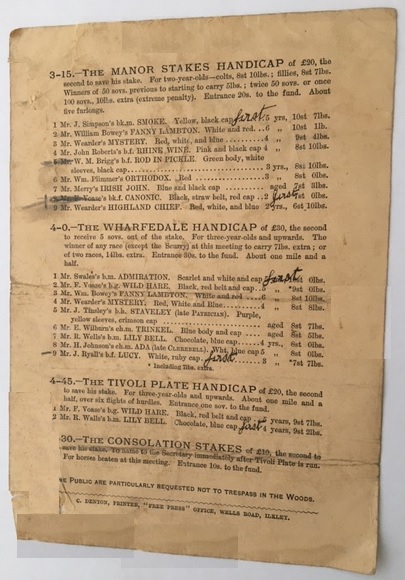 3-15.—THE MANOR STAKES HANDICAP of £20, the
second to save his stake. For two-year-olds—colts, 8st 10lbs.; fillies, 8st 7lbs.
Winners of 50 sovs. previous to starting to carry 5lbs.; twice 50 sovs. or once
100 sovs., 10lbs. extra (extreme penalty). Entrance 20s. to the fund. About
five furlongs.
1 Mr. J. Simpson's bk.m. SMOKE. Yellow, black cap first 5 yrs, 10st 7lbs.
2 Mr. William Bowey's FANNY LAMBTON. White and red...6 „ 10st 1lb.
3 Mr. Wearder's MYSTERY. Red, white, and blue 4 „ 9st 4lbs.
4 Mr. John Roberts's b.f. RHINE WINE. Pink and black cap 4 „ 8st 10lbs.
5 Mr. W. M. Brigg's b.f. ROD IN PICKLE. Green body, white
sleeves, black cap 3 yrs., 8st 10lbs.
6 Mr. Wm. Plimmer's ORTHODOX. Red 3 „ 8st 0lbs.
7 Mr. Merry's IRISH JOHN. Blue and black cap aged 7st 3lbs.
CANONIC. Black, straw belt, red cap 2 first 7st 0lbs.
9 Mr. Wearder's HIGHLAND CHIEF. Red, white, and blue 2 yrs., 6st 10lbs.
4-0.—THE WHARFEDALE HANDICAP of £30, the second
to receive 5 sovs. out of the stake. For three-year-olds and upwards. The
winner of any race (except the Scurry) at this meeting to carry 7lbs. extra; or
of two races, 14lbs. extra. Entrance 30s. to the fund. About one mile and a
half.
1 Mr. Swales's b.m. ADMIRATION. Scarlet and white cap first 0lbs.
2 Mr. F. Vozse's b.g. WILD HARE. Black, red belt and cap..5 „ *9st 0lbs.
3 Mr. Wm. Bowey's FANNY LAMBTON. White and red 6 „ 8st 10lbs.
4 Mr. Wearder's MYSTERY. Red, White and Blue 4 „ 8st 8lbs.
5 Mr. J. Tinsley's b.h. STAVELEY (late PATRICIAN). Purple,
yellow sleeves, crimson cap aged 8st 7lbs.
6 Mr. E. Wilburn's ch.m. TRINKEL. Blue body and cap aged 8st 5lbs.
7 Mr. R. Wells's b.m. LILY BELL. Chocolate, blue cap 4 yrs., 8st 0lbs.
8 Mr. H. Johnson's ch.m. ADA (late CLEREBELL). Wht, blue cap 5 „ 8st 0lbs.
9 Mr. J. Ryall's b.f. LUCY. White, ruby cap first 3 „ *7st 7lbs.
* Including 7lbs. extra.
4-45.—THE TIVOLI PLATE HANDICAP of £20, the second
to save his stake. For three-year-olds and upwards. About one mile and a
half, over six flights of hurdles. Entrance one sov. to the fund.
1 Mr. F. Vozse's b.g. WILD HARE. Black, red belt and cap years, 9st 7lbs.
2 Mr. R. Walls's b.m. LILY BELL. Chocolate, blue cap first 4 years, 9st 2lbs.
30.—THE CONSOLATION STAKES of £10, the second to
save his stake. To name to the Secretary immediately after Tivoli Plate is run.
For horses beaten at this meeting. Entrance 10s. to the fund.
PUBLIC ARE PARTICULARLY REQUESTED NOT TO TRESPASS IN THE WOODS.
C. DENTON, PRINTER, "FREE PRESS" OFFICE, WELLS ROAD, ILKLEY.